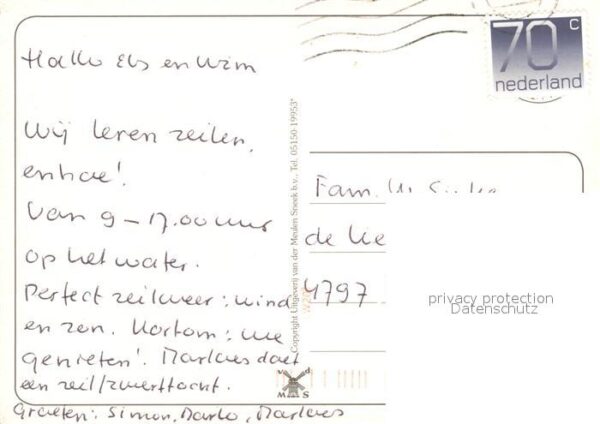 Hallo Els en Wim
70 c
nederland
Wij leren zeilen,
en hoe!
Van 9 – 17.00 uur
op het water.
Perfect zeilweer: wind
en zon. Kortom: we
genieten! Marloes doet
een zeil/zwerftocht.
Groeten: Simon, Marlo, Marloes
Copyright Uitgeverij van der Meulen Sneek b.v., Tel. 05150-19953*
v d
M S
Fam.
de
4797
privacy protection
Datenschutz